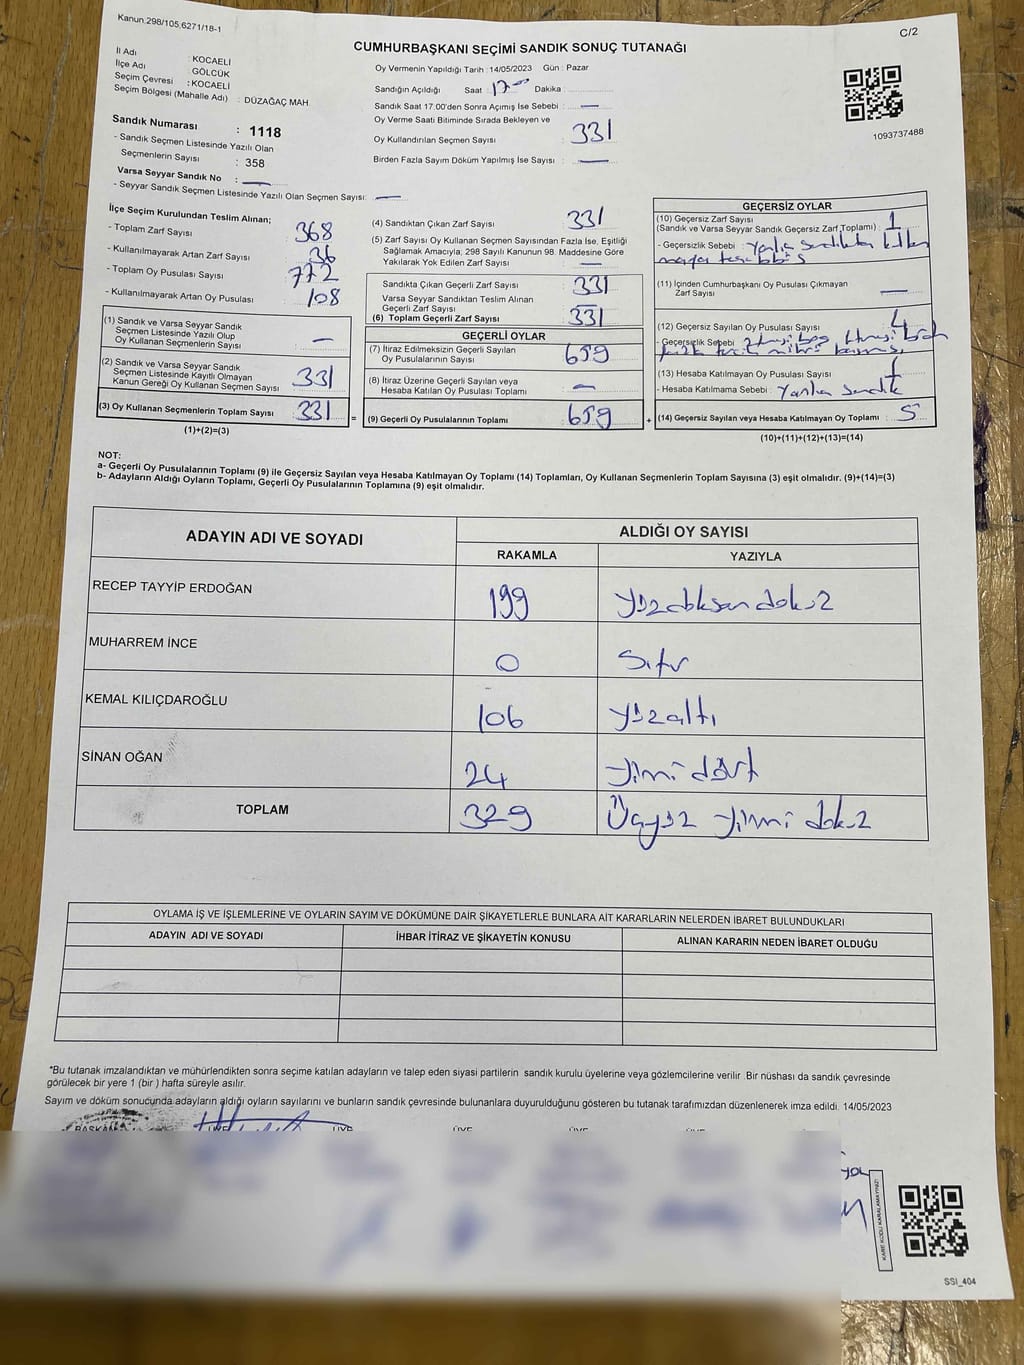 Kanun.298/105,6271/18-1
C/2
CUMHURBAŞKANI SEÇİMİ SANDIK SONUÇ TUTANAĞI
İl Adı : KOCAELİ
İlçe Adı : GÖLCÜK
Seçim Çevresi : KOCAELİ
Seçim Bölgesi (Mahalle Adı) : DÜZAĞAÇ MAH.
Oy Vermenin Yapıldığı Tarih : 14/05/2023 Gün : Pazar
Sandığın Açıldığı Saat : 17 Dakika :
Sandık Saat 17:00'den Sonra Açımış İse Sebebi : —
Oy Verme Saati Bitiminde Sırada Bekleyen ve
Oy Kullandırılan Seçmen Sayısı : 331
Birden Fazla Sayım Döküm Yapılmış İse Sayısı : —
1093737488
Sandık Numarası : 1118
- Sandık Seçmen Listesinde Yazılı Olan
Seçmenlerin Sayısı : 358
Varsa Seyyar Sandık No : —
- Seyyar Sandık Seçmen Listesinde Yazılı Olan Seçmen Sayısı: —
İlçe Seçim Kurulundan Teslim Alınan;
- Toplam Zarf Sayısı : 368
- Kullanılmayarak Artan Zarf Sayısı : 36
- Toplam Oy Pusulası Sayısı : 772
- Kullanılmayarak Artan Oy Pusulası : 108
(1) Sandık ve Varsa Seyyar Sandık
Seçmen Listesinde Yazılı Olup
Oy Kullanan Seçmenlerin Sayısı : —
(2) Sandık ve Varsa Seyyar Sandık
Seçmen Listesinde Kayıtlı Olmayan
Kanun Gereği Oy Kullanan Seçmen Sayısı : 331
(3) Oy Kullanan Seçmenlerin Toplam Sayısı : 331 =
(1)+(2)=(3)
(4) Sandıktan Çıkan Zarf Sayısı : 331
(5) Zarf Sayısı Oy Kullanan Seçmen Sayısından Fazla İse, Eşitliği
Sağlamak Amacıyla; 298 Sayılı Kanunun 98. Maddesine Göre
Yakılarak Yok Edilen Zarf Sayısı : —
Sandıkta Çıkan Geçerli Zarf Sayısı : 331
Varsa Seyyar Sandıktan Teslim Alınan
Geçerli Zarf Sayısı :
(6) Toplam Geçerli Zarf Sayısı : 331
GEÇERLİ OYLAR
(7) İtiraz Edilmeksizin Geçerli Sayılan
Oy Pusulalarının Sayısı : 659
(8) İtiraz Üzerine Geçerli Sayılan veya
Hesaba Katılan Oy Pusulası Toplamı : —
(9) Geçerli Oy Pusulalarının Toplamı : 659 +
GEÇERSİZ OYLAR
(10) Geçersiz Zarf Sayısı : 1
(Sandık ve Varsa Seyyar Sandık Geçersiz Zarf Toplamı)
- Geçersizlik Sebebi : Yanlış sandıkta
(11) İçinden Cumhurbaşkanı Oy Pusulası Çıkmayan
Zarf Sayısı : —
(12) Geçersiz Sayılan Oy Pusulası Sayısı : 4
- Geçersizlik Sebebi
(13) Hesaba Katılmayan Oy Pusulası Sayısı : 1
- Hesaba Katılmama Sebebi : Yanlış Sandık
(14) Geçersiz Sayılan veya Hesaba Katılmayan Oy Toplamı : 5
(10)+(11)+(12)+(13)=(14)
NOT:
a- Geçerli Oy Pusulalarının Toplamı (9) ile Geçersiz Sayılan veya Hesaba Katılmayan Oy Toplamı (14) Toplamları, Oy Kullanan Seçmenlerin Toplam Sayısına (3) eşit olmalıdır. (9)+(14)=(3)
b- Adayların Aldığı Oyların Toplamı, Geçerli Oy Pusulalarının Toplamına (9) eşit olmalıdır.
ADAYIN ADI VE SOYADI ALDIĞI OY SAYISI
RAKAMLA YAZIYLA
RECEP TAYYİP ERDOĞAN 199 Yüzdoksan dokuz
MUHARREM İNCE 0 Sıfır
KEMAL KILIÇDAROĞLU 106 Yüzaltı
SİNAN OĞAN 24 Yirmi dört
TOPLAM 329 Üçyüz yirmi dokuz
OYLAMA İŞ VE İŞLEMLERİNE VE OYLARIN SAYIM VE DÖKÜMÜNE DAİR ŞİKAYETLERLE BUNLARA AİT KARARLARIN NELERDEN İBARET BULUNDUKLARI
ADAYIN ADI VE SOYADI İHBAR İTİRAZ VE ŞİKAYETİN KONUSU ALINAN KARARIN NEDEN İBARET OLDUĞU
*Bu tutanak imzalandıktan ve mühürlendikten sonra seçime katılan adayların ve talep eden siyasi partilerin sandık kurulu üyelerine veya gözlemcilerine verilir .Bir nüshası da sandık çevresinde
görülecek bir yere 1 (bir ) hafta süreyle asılır.
Sayım ve döküm sonucunda adayların aldığı oyların sayılarını ve bunların sandık çevresinde bulunanlara duyurulduğunu gösteren bu tutanak tarafımızdan düzenlenerek imza edildi. 14/05/2023
BAŞKAN ÜYE ÜYE ÜYE ÜYE ÜYE
KARE KODU KARALAMAYINIZ!
SSI_404